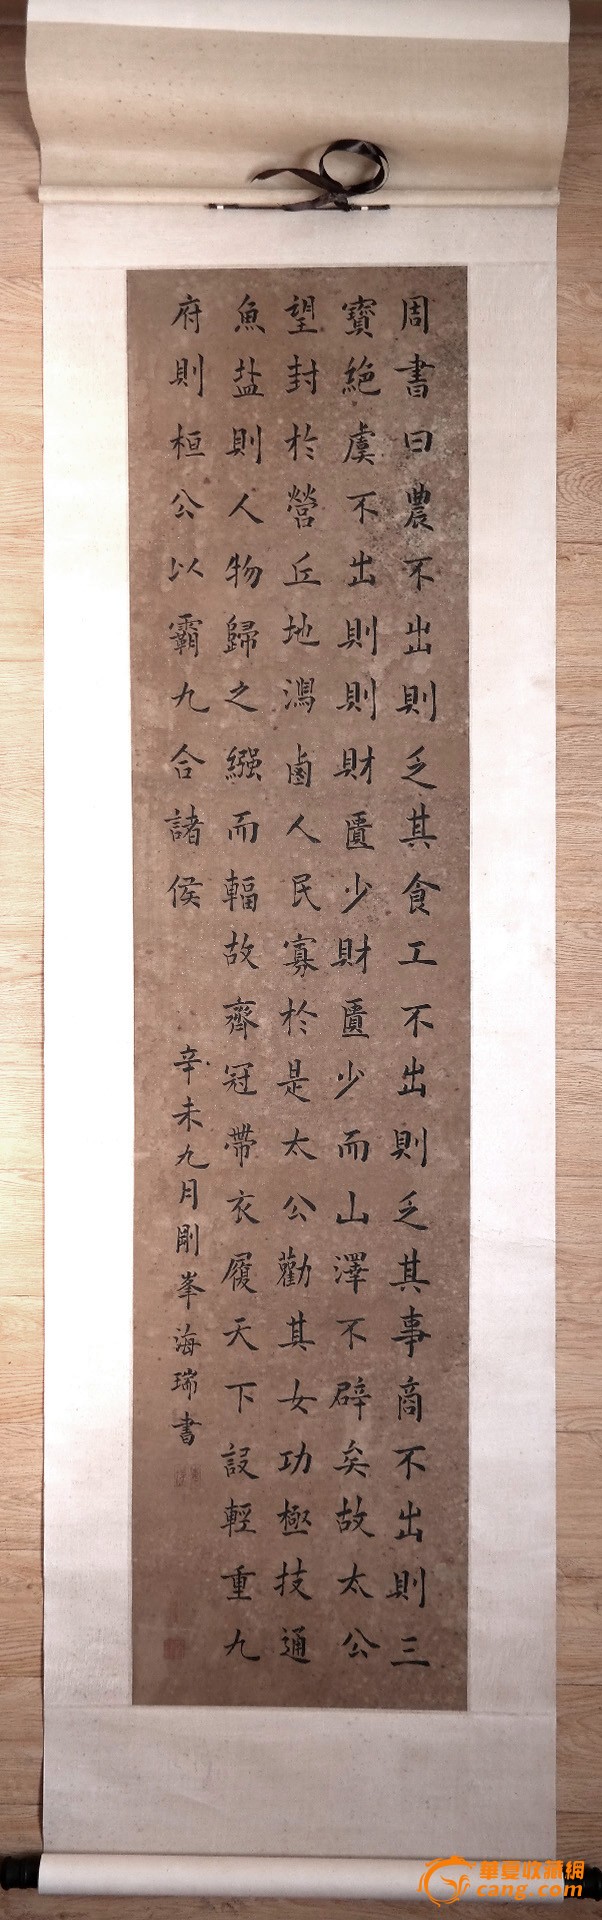 周書曰農不出則乏其食工不出則乏其事商不出則三
寳絶虞不出則則財匱少財匱少而山澤不辟矣故太公
望封於營丘地潟鹵人民寡於是太公勸其女功極技通
魚盐則人物歸之繦而輻故齊冠帶衣履天下設輕重九
府則桓公以霸九合諸侯
辛未九月剛峯海瑞書
華夏收藏網
cang.com